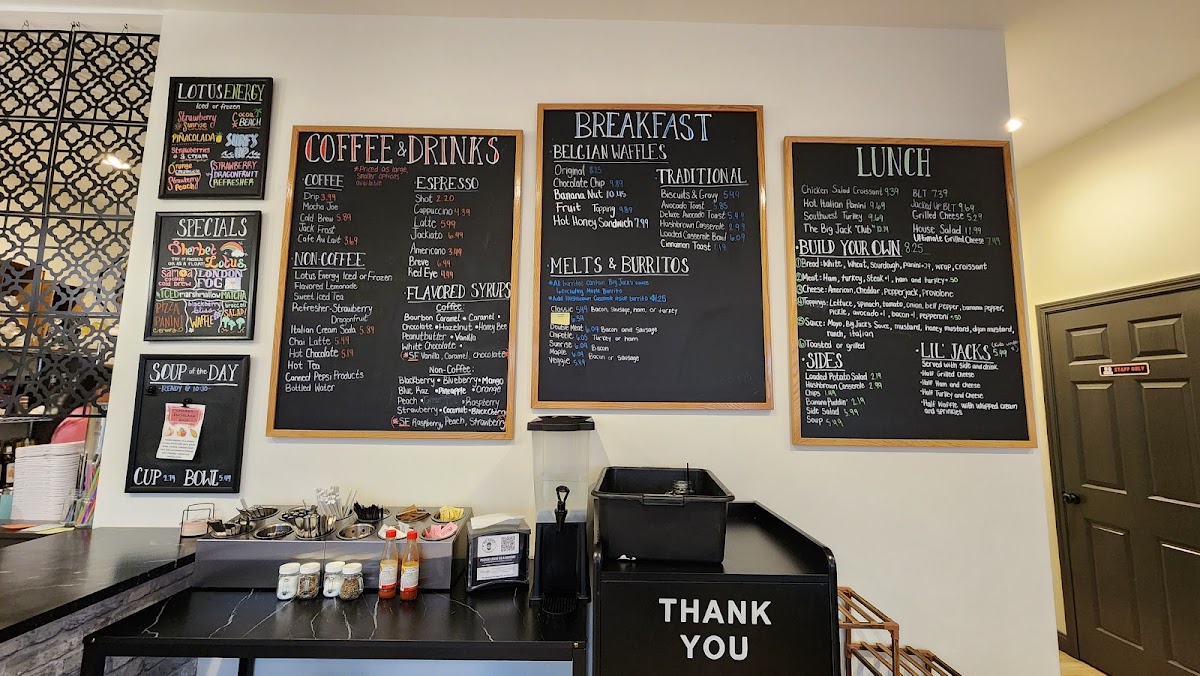 LOTUS ENERGY
Iced or frozen
Strawberry
Sunrise
COCOA
BEACH
PIÑACOLADA
Strawberries
& cream
Orange
Strawberry
Peach
STRAWBERRY
DRAGONFRUIT
REFRESHER
SPECIALS
Sherbet
Lotus
TRY IT FROZEN
OR AS A FLOAT
Samoa
cold brew
LONDON
FOG
ICED marshmallow MATCHA
PIZZA
PANINI
blackberry
WAFFLE
broccoli
SALAD
SOUP of the DAY
-READY @ 10:30-
CUP 2.79 BOWL 5.49
COFFEE & DRINKS
*Priced as large,
smaller options
available
COFFEE
Drip 3.99
Mocha Joe
Cold Brew 5.89
Jack Frost
Cafe Au Lait 3.69
NON-COFFEE
Lotus Energy Iced or Frozen
Flavored Lemonade
Sweet Iced Tea
Refresher-Strawberry
Dragonfruit
Italian Cream Soda 5.39
Chai Latte 5.49
Hot Chocolate 5.19
Hot Tea
Canned Pepsi Products
Bottled Water
ESPRESSO
Shot 2.20
Cappuccino 4.39
Latte 5.99
Jackiato 6.49
Americano 3.99
Breve 6.49
Red Eye 4.99
FLAVORED SYRUPS
Coffee
Bourbon Caramel • Caramel •
Chocolate • Hazelnut • Honey Bee
Peanutbutter • Vanilla
White Chocolate •
*SF Vanilla, Caramel, chocolate*
Non-Coffee:
Blackberry • Blueberry • Mango
Blue Raz • Pineapple • Orange
Peach • Raspberry
Strawberry • Coconut • Black Cherry
*SF Raspberry, Peach, Strawberry
BREAKFAST
• BELGIAN WAFFLES
Original 8.25
Chocolate Chip 9.89
Banana Nut 10.45
Fruit Topping 9.89
Hot Honey Sandwich 7.99
• TRADITIONAL
Biscuits & Gravy 5.49
Avocado Toast 5.85
Deluxe Avocado Toast
Hashbrown Casserole 2.99
Loaded Casserole Bowl 6.09
Cinnamon Toast
• MELTS & BURRITOS
*All burritos contain Big Jack's sauce
excluding Maple Burrito
*Add Hashbrown Casserole inside burrito $1.25
Classic 5.49 Bacon, Sausage, ham, or turkey
Double Meat 6.09 Bacon and Sausage
Chipotle 6.09 Turkey or ham
Sunrise 6.09 Bacon
Maple 6.09 Bacon or Sausage
Veggie 5.49
LUNCH
Chicken Salad Croissant 9.39
Hot Italian Panini 9.69
Southwest Turkey 9.69
The Big Jack "Club" 10.19
BLT 7.39
Jacked Up BLT 9.69
Grilled Cheese 5.29
House Salad 11.99
Ultimate Grilled Cheese 7.49
• BUILD YOUR OWN 8.25
① Bread: White, Wheat, Sourdough, panini +.79, wrap, croissant
② Meat: Ham, turkey, steak +1, ham and turkey +.50
③ Cheese: American, Cheddar, Pepperjack, Provolone
④ Toppings: Lettuce, spinach, tomato, onion, bell pepper, banana pepper,
pickle, avocado +1, bacon +1, pepperoni +.50
⑤ Sauce: Mayo, Big Jack's Sauce, mustard, honey mustard, dijon mustard,
ranch, italian
⑥ Toasted or grilled
• SIDES
Loaded Potato Salad 2.19
Hashbrown Casserole 2.99
Chips 1.99
Banana Puddin' 2.19
Side Salad 5.99
Soup 5.49
• LIL' JACKS 5.99
Served with side and drink
•Half Grilled Cheese
•Half Ham and Cheese
•Half Turkey and Cheese
•Half Waffle with whipped cream
and sprinkles
STAFF ONLY
THANK
YOU